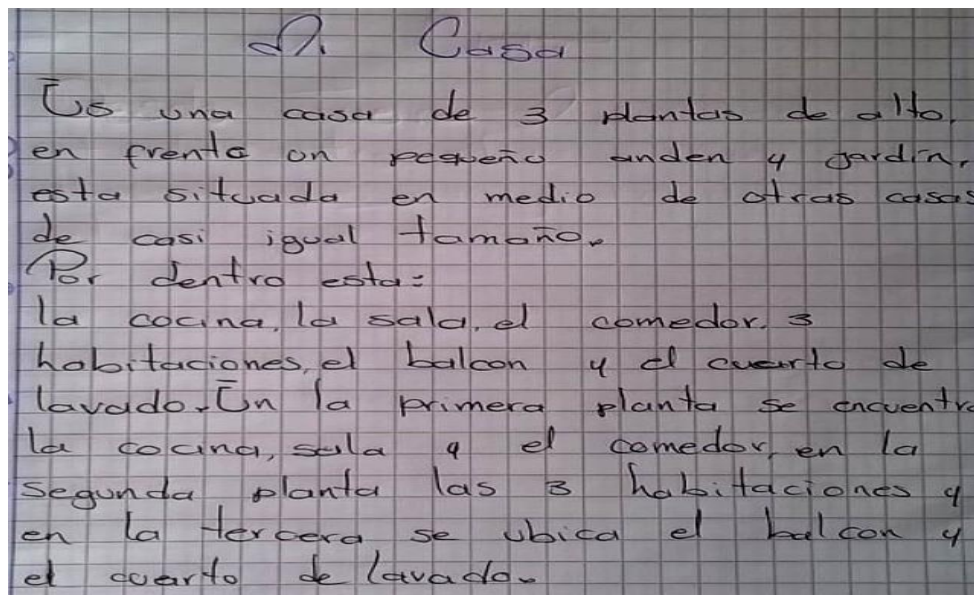 Casa
Es una casa de 3 plantas de alto,
en frente un pequeño anden y jardín,
esta situada en medio de otras casas
de casi igual tamaño.
Por dentro esta:
la cocina, la sala, el comedor, 3
habitaciones, el balcon y el cuarto de
lavado. En la primera planta se encuentra
la cocina, sala y el comedor, en la
segunda planta las 3 habitaciones y
en la tercera se ubica el balcon y
el cuarto de lavado.